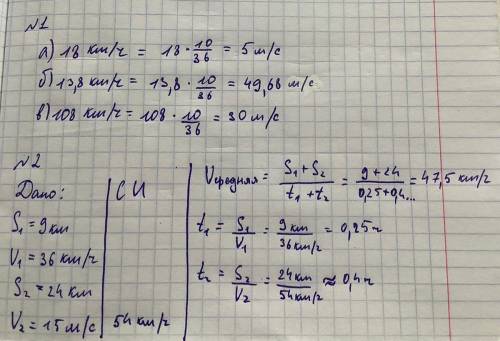 №1
а) 18 км/ч = 18 · 10/36 = 5 м/с
б) 13,8 км/ч = 13,8 · 10/36 = 49,68 м/с
в) 108 км/ч = 108 · 10/36 = 30 м/с
№2
Дано:
СИ
S₁ = 9 км
V₁ = 36 км/ч
S₂ = 24 км
V₂ = 15 м/с
54 км/ч
Vсредняя = S₁ + S₂ / t₁ + t₂ = 9 + 24 / 0,25 + 0,4... = 47,5 км/ч
t₁ = S₁/V₁ = 9 км / 36 км/ч = 0,25 ч
t₂ = S₂/V₂ = 24 км / 54 км/ч ≈ 0,4 ч